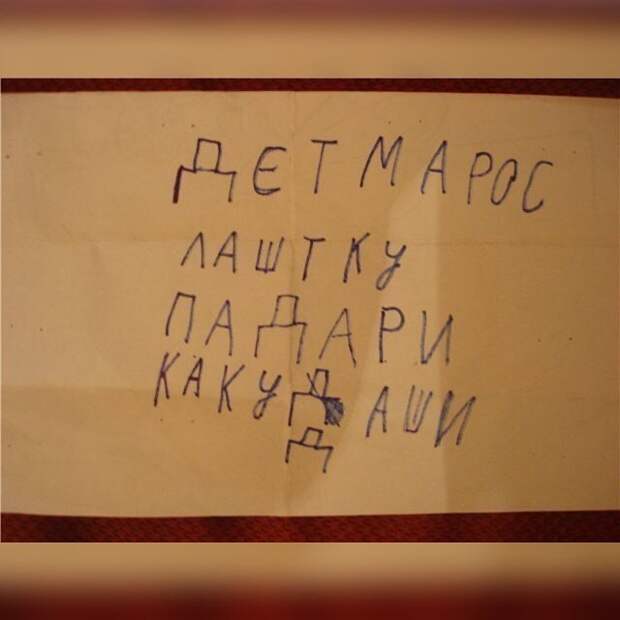 ДЕТ МАРОС
ЛАШТКУ
ПАДАРИ
КАКУ ДАШИ